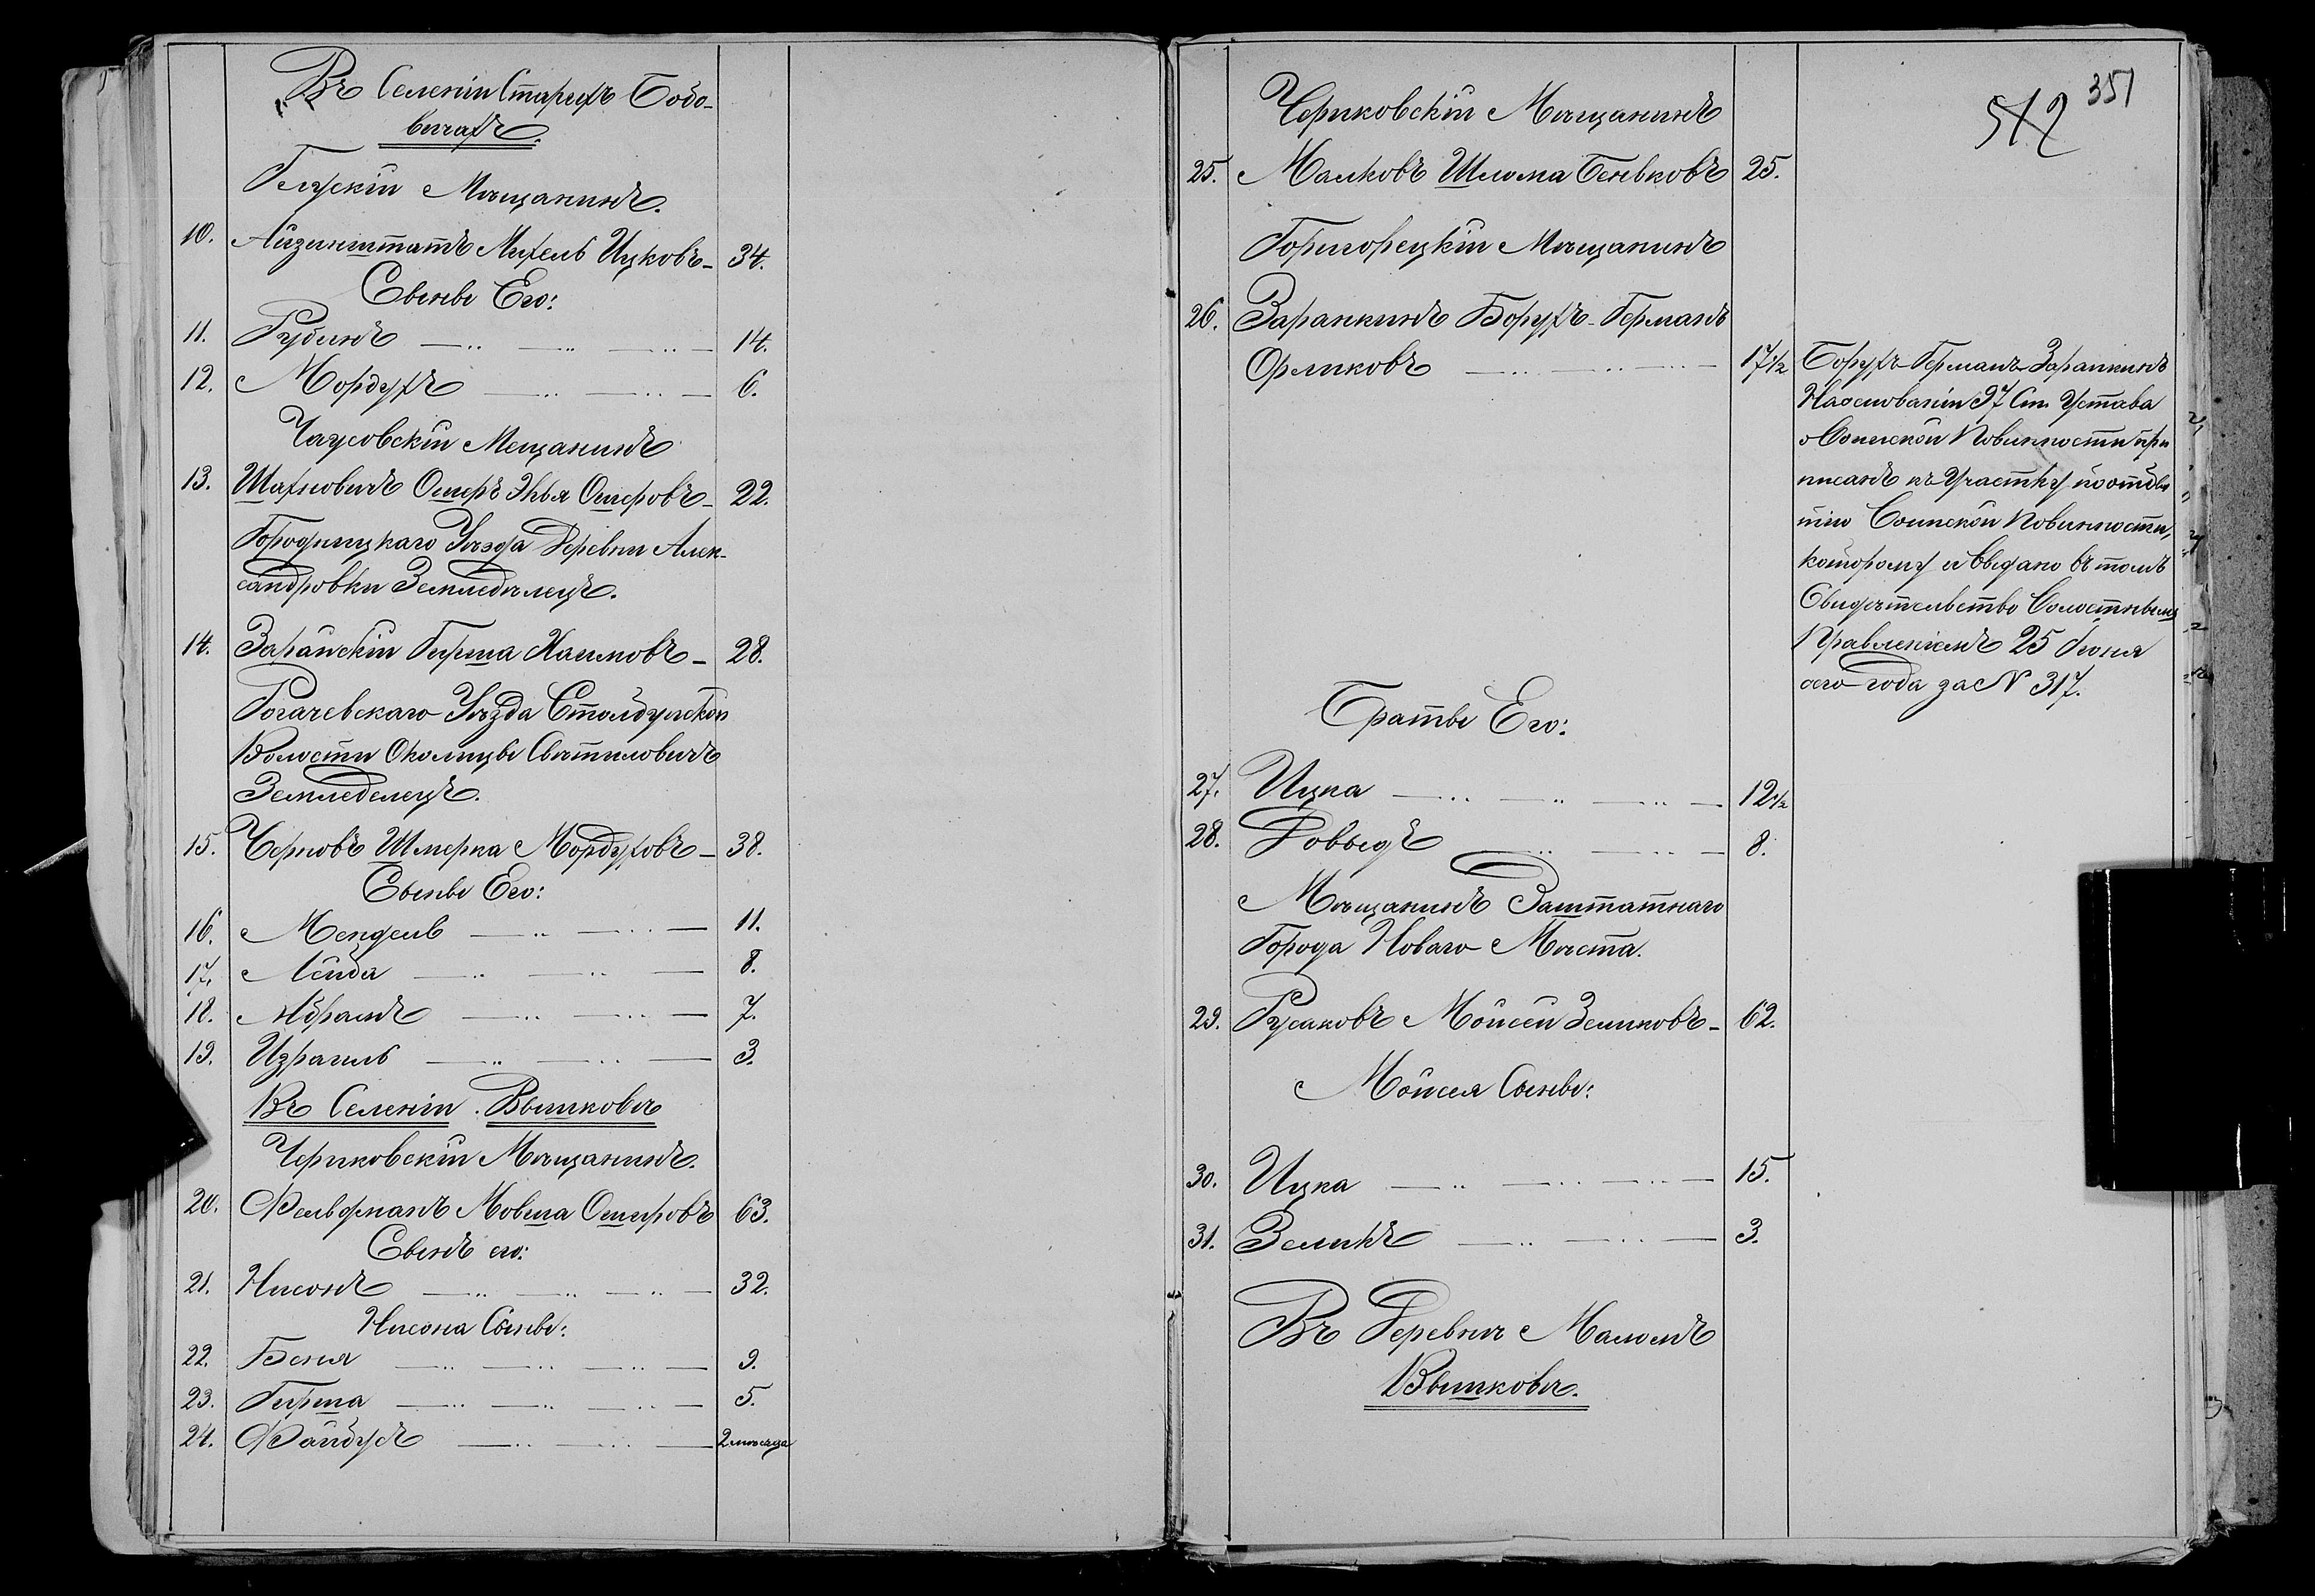 Въ Селеніи Старыхъ Бобо-
вичахъ.
Глускій Мѣщанинъ.
10. Айзинштатъ Михель Ицковъ - 34.
Сыновья Его:
11. Рубинъ 14.
12. Мордухъ 6.
Чаусовскій Мещанинъ
13. Шахновичъ Ошеръ Энья Ошеровъ - 22.
Городницкаго Уѣзда Деревни Алек-
сандровки Земледѣлецъ.
14. Зарайскій Гирша Хаимовъ - 28.
Рогачевскаго Уѣзда Столбунской
Волости Околицы Святиловичъ
Земледелецъ.
15. Черновъ Шмерка Мордуховъ - 38.
Сыновья Его:
16. Мендель 11.
17. Лейба 8.
18. Абрамъ 7.
19. Израиль 3.
Въ Селеніи Вышковѣ
Чериковскій Мѣщанинъ.
20. Фельдманъ Мовша Ошеровъ 63.
Сынъ его:
21. Нисонъ 32.
Нисона Сыны:
22. Беня 9.
23. Гирша 5.
24. Файбусъ 2 мѣсяца
351
512
Чериковскій Мѣщанинъ
25. Малковъ Шлома Беньковъ 25.
Горыгорецкій Мѣщанинъ
26. Заранкинъ Борухъ-Германъ
Орликовъ 17 1/2
Борухъ-Германъ Заранкинъ
На основаніи 97 Ст. Устава
о Воинской Повинности при
писанъ къ Участку по отбы
тію Воинской Повинности,
которому и выдано въ томъ
Свидѣтельство Волостнымъ
Правленіемъ 25 Іюня
сего года за N 317.
Братья Его:
27. Ицка 12 1/2
28. Довыдъ 8.
Мѣщанинъ Заштатнаго
Города Новаго Мѣста.
29. Русаковъ Мойсей Зеликовъ - 62.
Мойсея Сыны:
30. Ицка 15.
31. Зеликъ 3.
Въ Деревнѣ Маломъ
Вышковѣ.